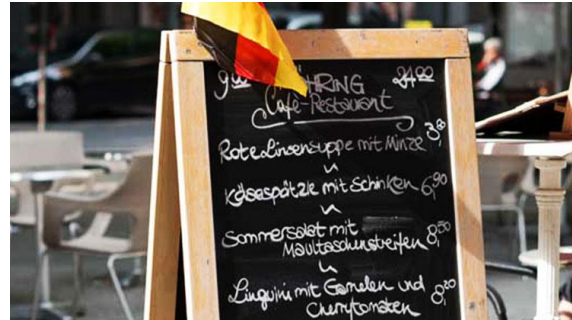 9:00 HRING 24:00
Café-Restaurant
Rote Linsensuppe mit Minze 3,80
Käsespätzle mit Schinken 6,90
Sommersalat mit
Maultaschenstreifen 8,50
Linguini mit Garnelen und
Cherrytomaten 8,20